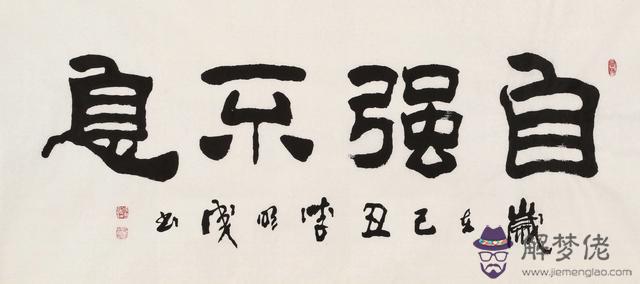 自强不息
歲在己丑 书
解梦佬
www.jiemenglao.com